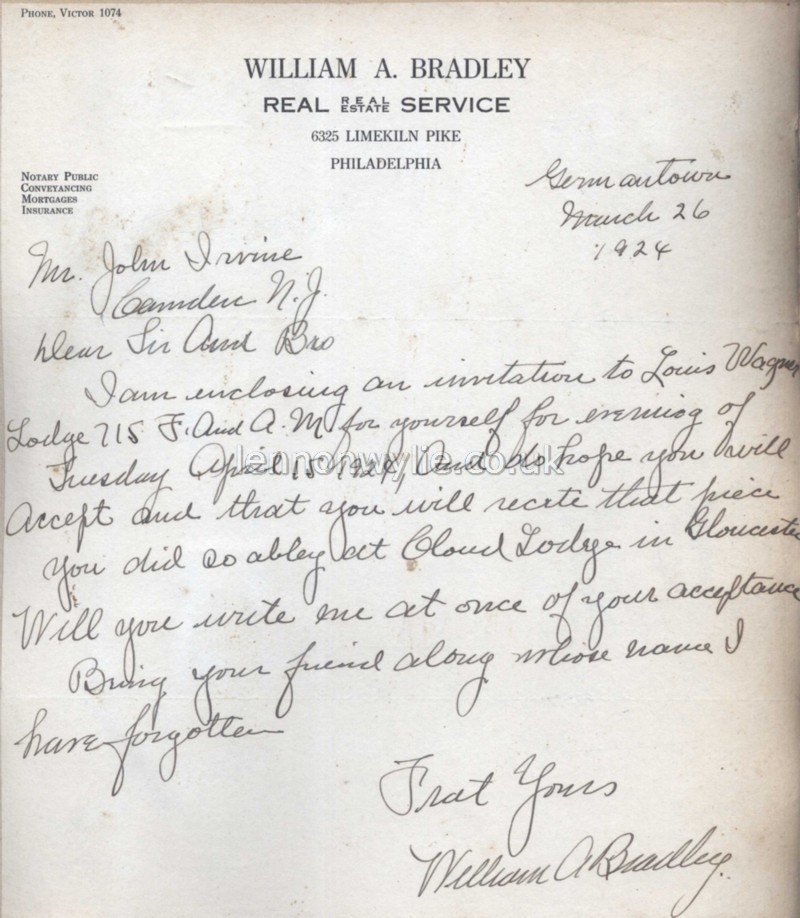 PHONE, VICTOR 1074
WILLIAM A. BRADLEY
REAL REAL ESTATE SERVICE
6325 LIMEKILN PIKE
PHILADELPHIA
NOTARY PUBLIC
CONVEYANCING
MORTGAGES
INSURANCE
Germantown
March 26
1924
Mr. John Irvine
Camden N.J.
Dear Sir And Bro
I am enclosing an invitation to Louis Wagner
Lodge 715 F. And A.M for yourself for evening of
Tuesday April 15 1924, And do hope you will
lennonwylie.co.uk
Accept and that you will recite that piece
you did so abley at Cloud Lodge in Gloucester
Will you write me at once of your acceptance
Bring your friend along whose name I
have forgotten
Frat Yours
William A Bradley.